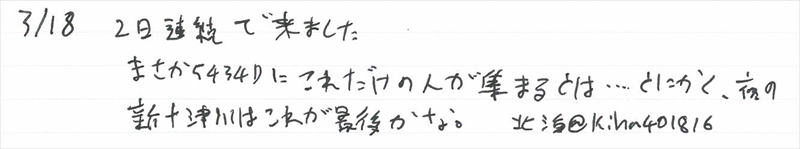 3/18 2日連続で来ました
まさか5434Dにこれだけの人が集まるとは…とにかく、夜の
新十津川はこれが最後かな。 北浜@kiha401816